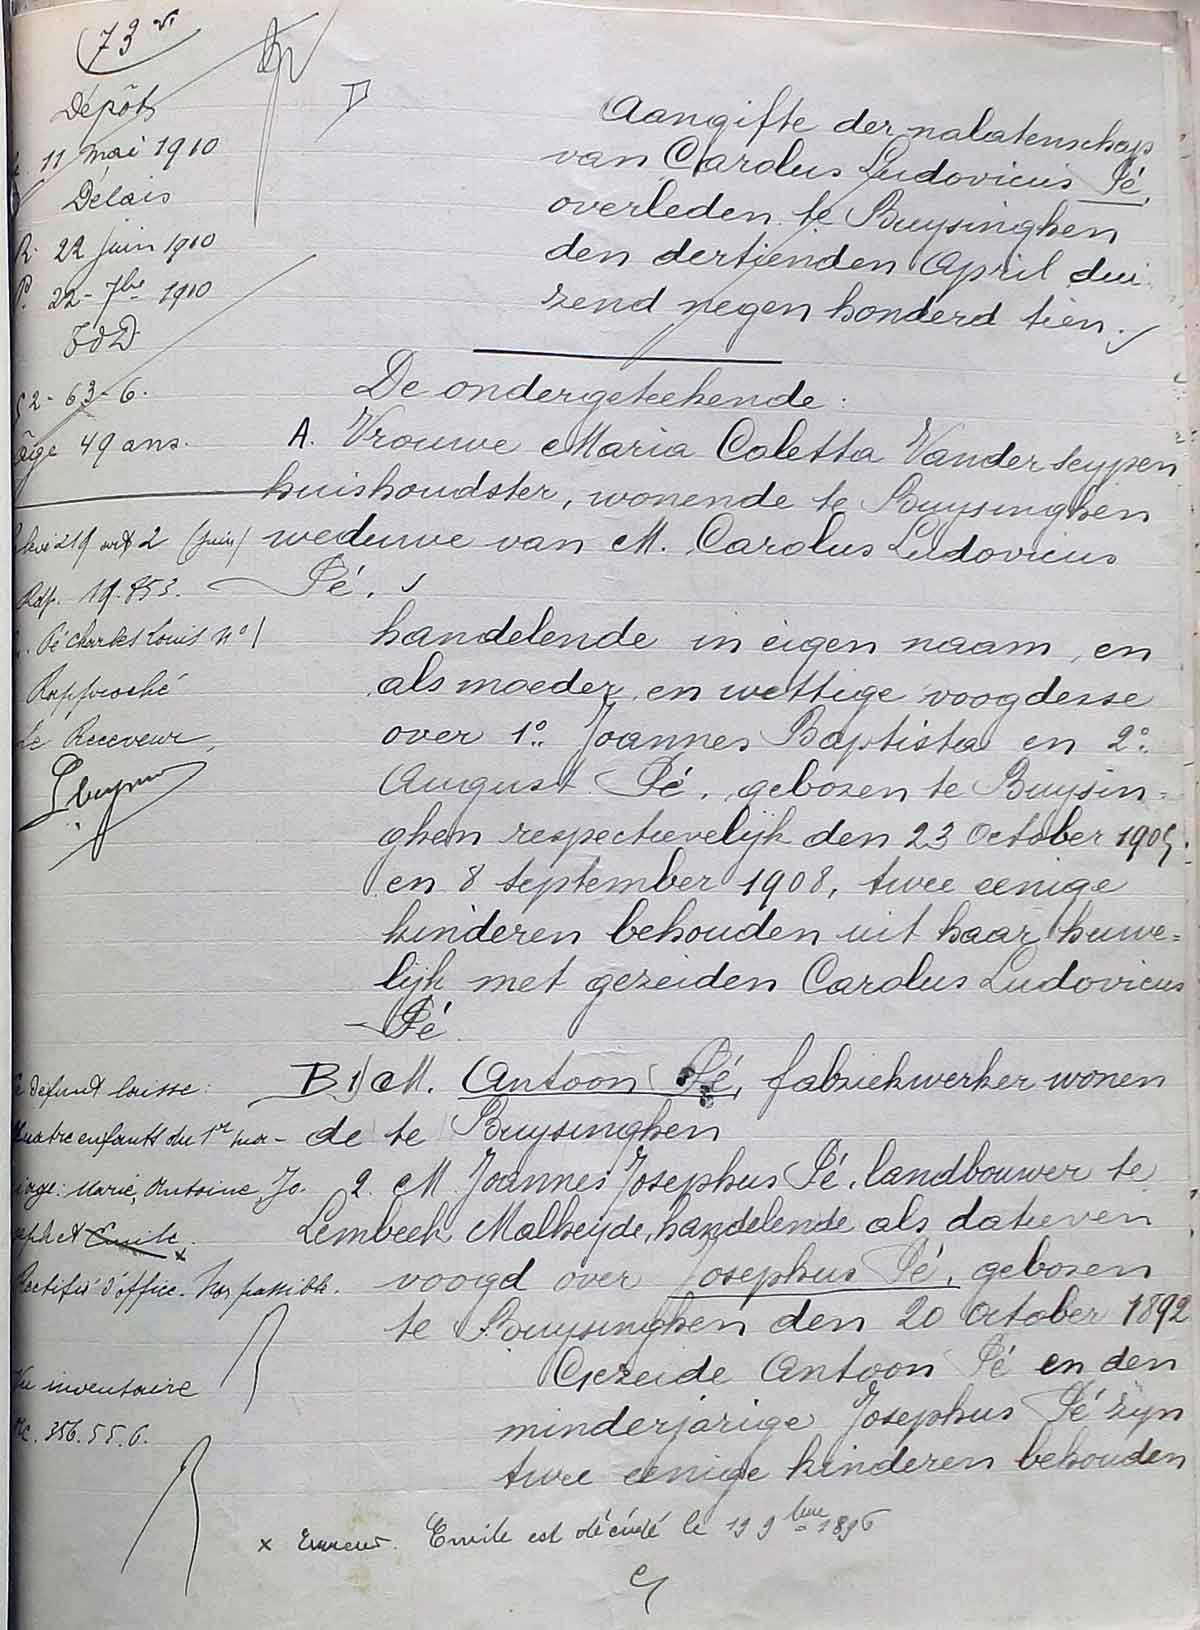 73
Dépôt
11 mai 1910
Délais
R. 22 juin 1910
P. 22 - 7bre 1910
§2 - 63 - 6.
âge 49 ans.
219 art 2 (juin)
Rép. 19.853.
Pé Charles Louis No 1
Rapproché
Le Receveur,
Aangifte der nalatenschap
van Carolus Ludovicus Pé,
overleden te Buysinghen
den dertienden April dui
zend negen honderd tien.
De ondergeteekende:
A. Vrouwe Maria Coletta Vanderseypen
huishoudster, wonende te Buysinghen
weduwe van M. Carolus Ludovicus
Pé.
handelende in eigen naam, en
als moeder en wettige voogdesse
over 1o. Joannes Baptista en 2o.
August Pé, geboren te Buysin=
ghen respectievelijk den 23 October 1905
en 8 september 1908, twee eenige
kinderen behouden uit haar huwe=
lijk met gezeiden Carolus Ludovicus
Pé
B 1) M. Antoon Pé, fabriekwerker wonen
de te Buysinghen
2. M Joannes Josephus Pé, landbouwer te
Lembeek Malheyde, handelende als datieven
voogd over Josephus Pé, geboren
te Buysinghen den 20 October 1892
Gezeide Antoon Pé en den
minderjarige Josephus Pé zijn
twee eenige kinderen behouden
Le defunt laisse:
quatre enfants du 1er ma-
riage: Marie, Antoine, Jo-
seph et Emile x
Rectifié d'office. Non passible.
Vu inventaire
356.55.6.
x Erreur. Emile est décédé le 19 9bre 1896